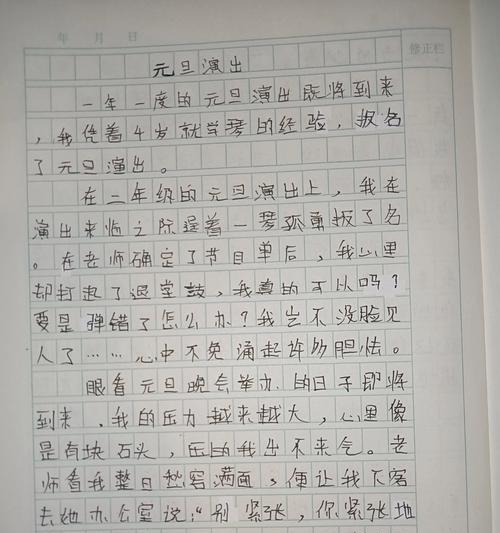 年 月 日
修正栏
元旦演出
一年一度的元旦演出既将到来
，我凭着4岁就学琴的经验，报名
了元旦演出。
在二年级的元旦演出上，我在
演出来临之际逞着一琴孤勇报了名
。在老师确定了节目单后，我心里
却打起了退堂鼓，我真的可以吗？
要是弹错了怎么办？我岂不没脸见
人了……心中不免涌起许多胆怯。
眼看元旦晚会举办的日子即将
到来，我的压力越来越大，心里像
是有块石头，压的我出不来气。老
师看我整日愁容满面，便让我下客
去她办公室说："别紧张，你紧张地